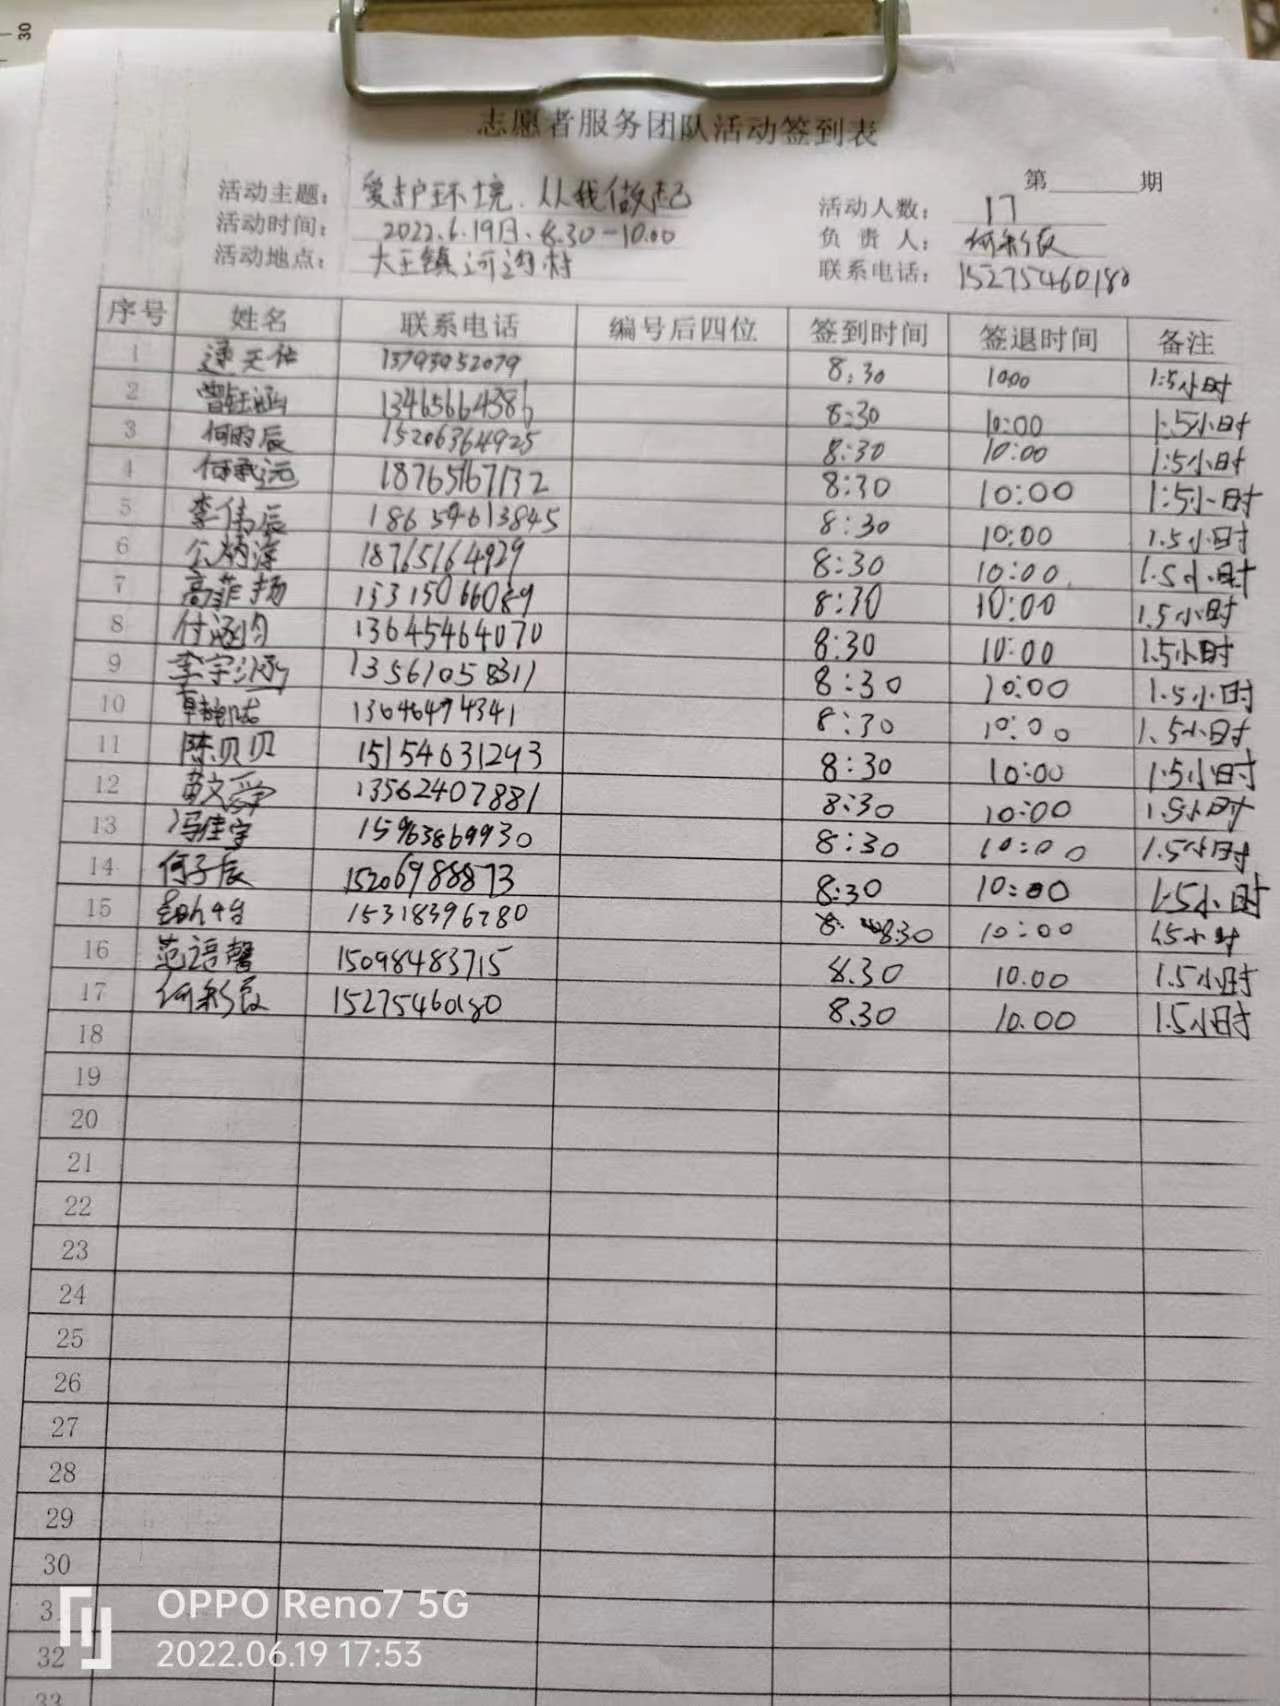 30
志愿者服务团队活动签到表
第 期
活动主题: 爱护环境、从我做起 活动人数: 17
活动时间: 2022.6.19日、8.30-10.00 负责人:
活动地点: 大王镇 村 联系电话: 15275460180
序号 姓名 联系电话 编号后四位 签到时间 签退时间 备注
1 8:30 1000 1:5小时
2 曾钰涵 13465664386 8:30 10:00 1:5小时
3 15206364925 8:30 10:00 1:5小时
4 18765167132 8:30 10:00 1:5小时
5 李伟辰 18659613845 8:30 10:00 1.5小时
6 18765164929 8:30 10:00 1.5小时
7 高菲扬 15315066089 8:30 10:00 1.5小时
8 付涵均 13645464070 8:30 10:00 1.5小时
9 李宇涵 13561058311 8:30 10:00 1.5小时
10 13646474341 8:30 10:00 1.5小时
11 陈贝贝 15154631293 8:30 10:00 1:5小时
12 13562407881 8:30 10:00 1.5小时
13 冯佳宇 15963869930 8:30 10:00 1.5小时
14 何子辰 15206988873 8:30 10:00 1.5小时
15 15318396280 8:30 10:00 1.5小时
16 范语馨 15098483715 8.30 10.00 1.5小时
17 15275460180 8.30 10.00 1.5小时
18
19
20
21
22
23
24
25
26
27
28
29
30
3
32
33
OPPO Reno7 5G
2022.06.19 17:53